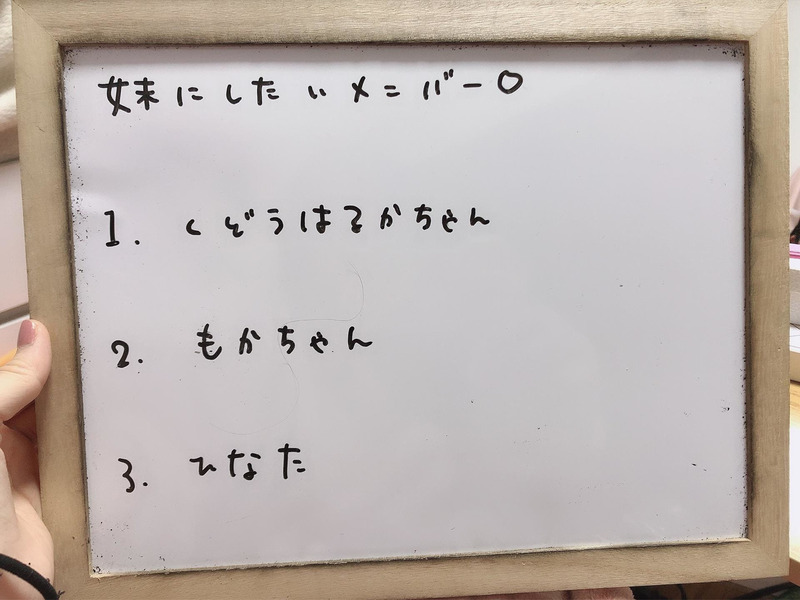 妹にしたいメンバー○
1. くどうはるかちゃん
2. もかちゃん
3. ひなた